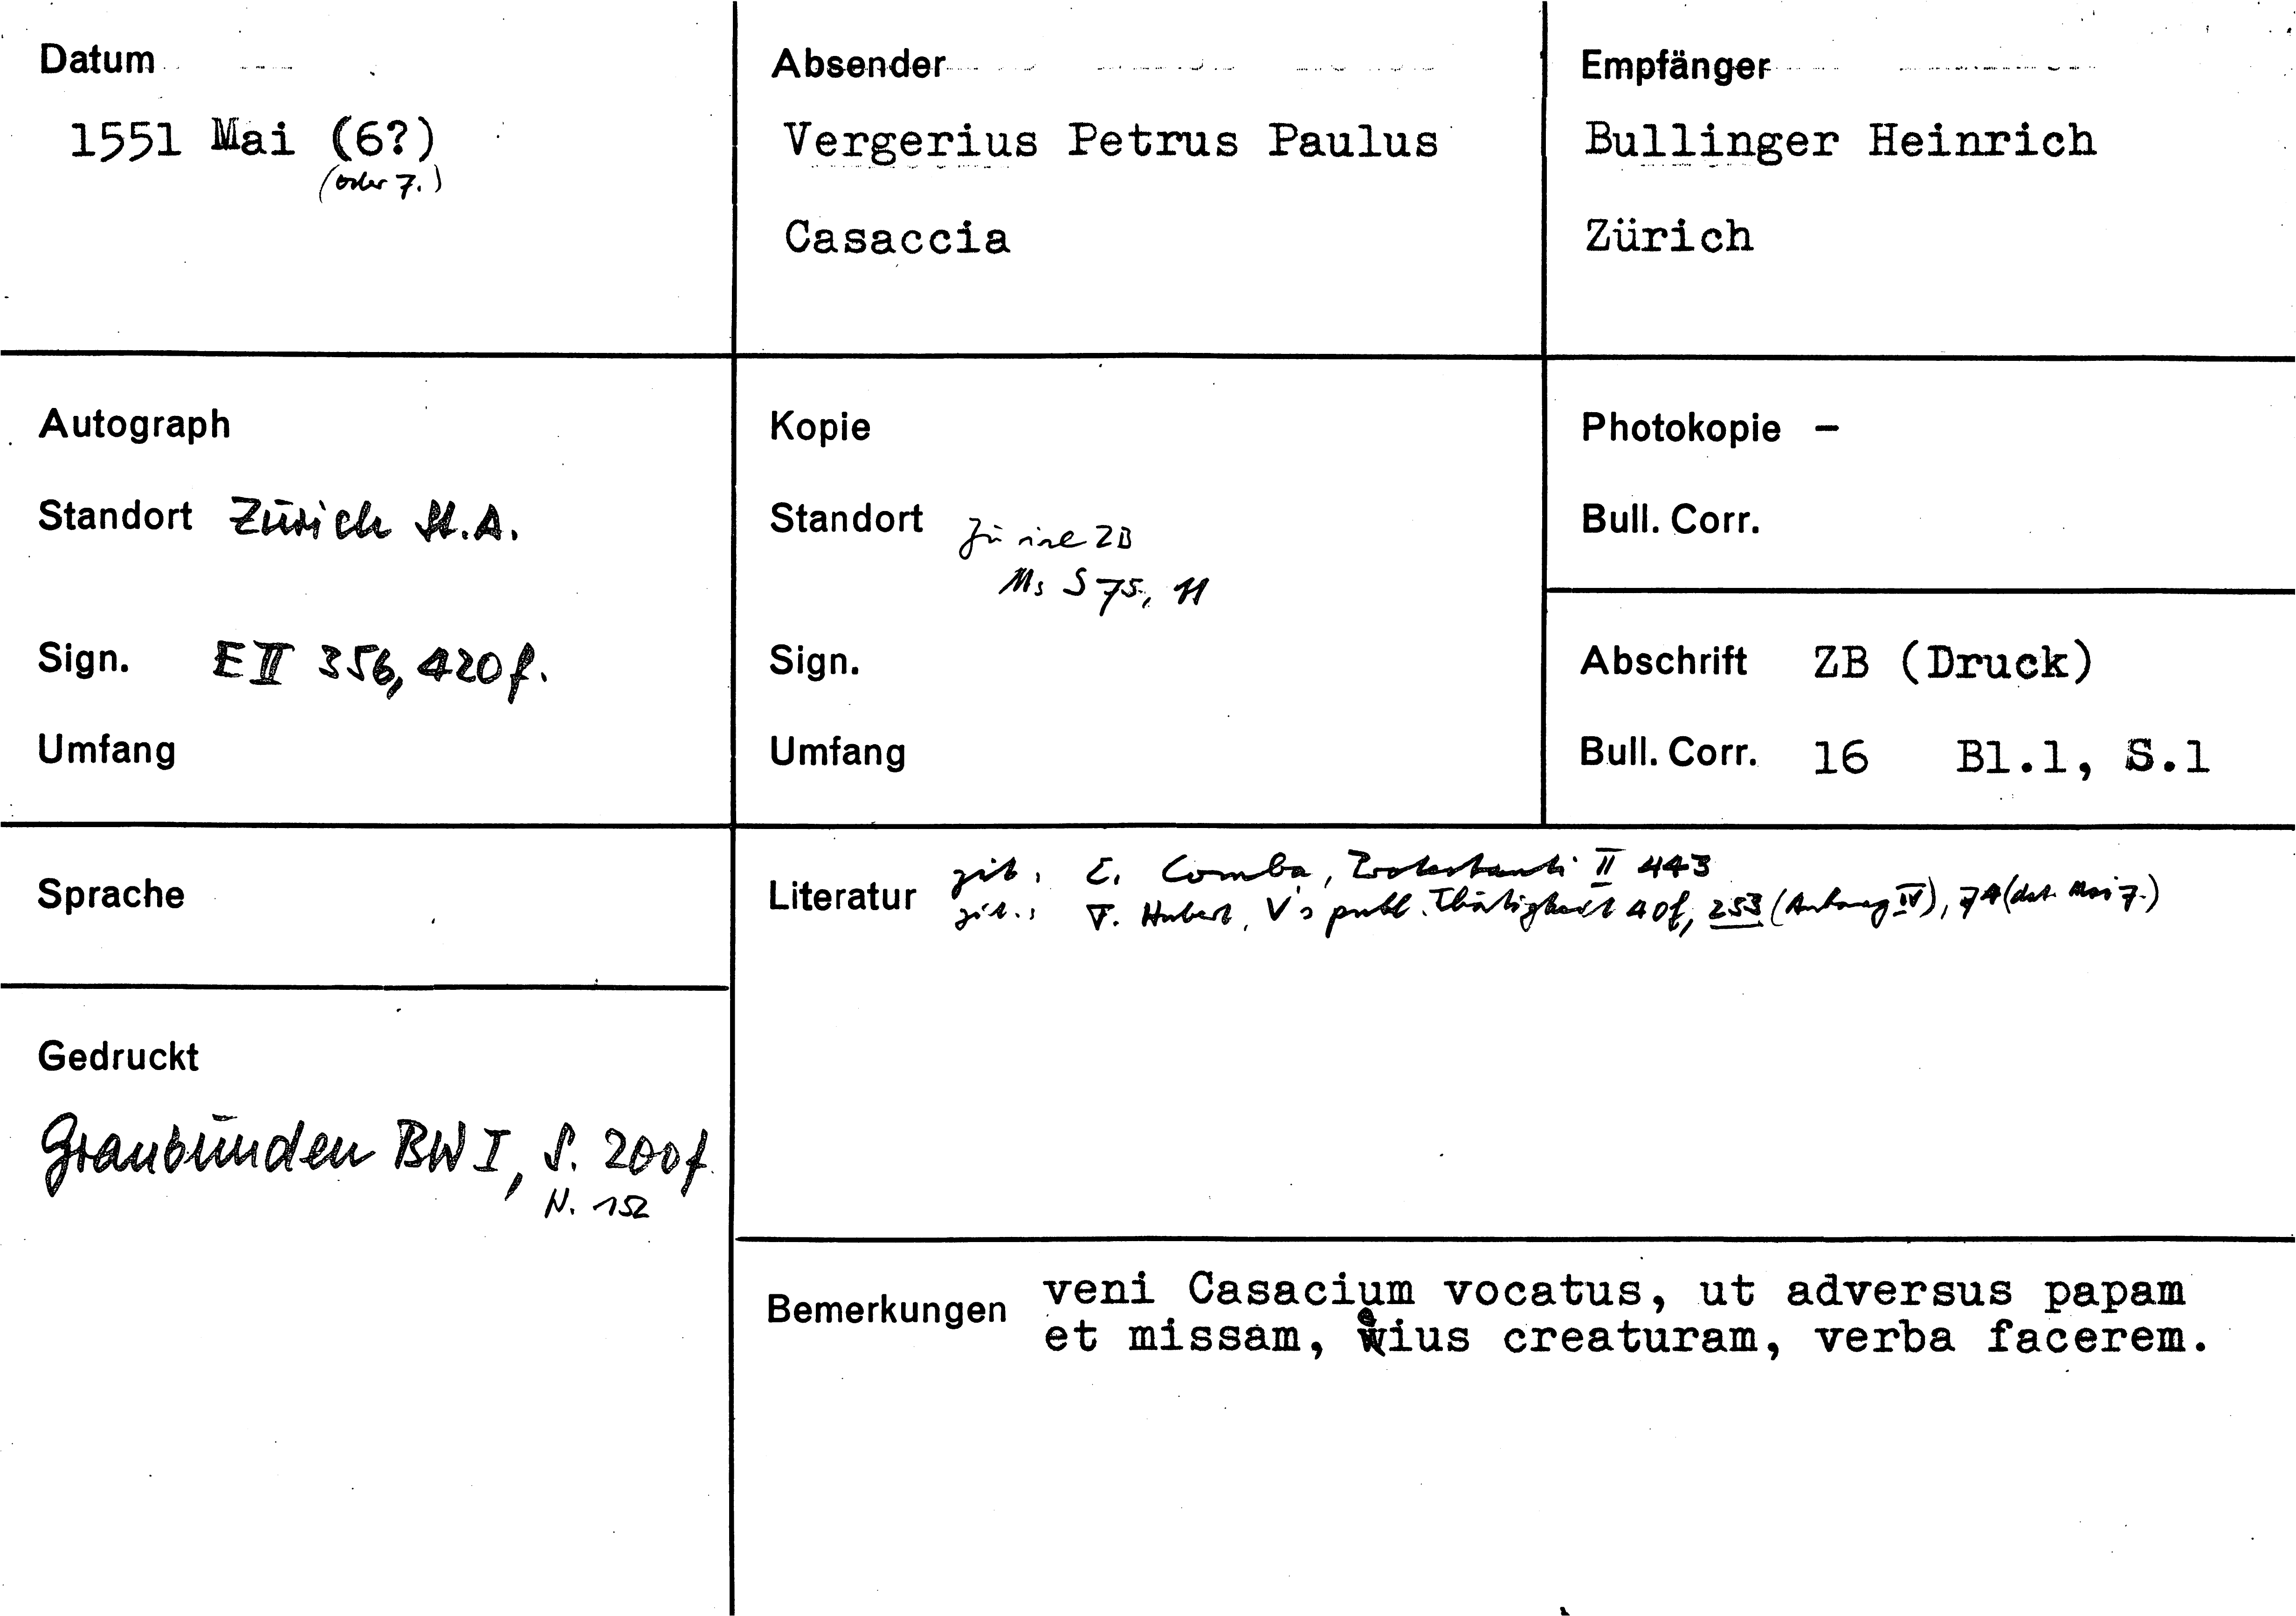 Datum
1551 Mai (6?)
(oder 7.)
Absender
Vergerius Petrus Paulus
Casaccia
Empfänger
Bullinger Heinrich
Zürich
Autograph
Standort Zürich St.A.
Sign. E II 356, 420f.
Umfang
Kopie
Standort Zürich ZB
Ms S 75, 11
Sign.
Umfang
Photokopie –
Bull. Corr.
Abschrift ZB (Druck)
Bull. Corr. 16 Bl.1, S.1
Sprache
Gedruckt
Graubünden BW I, S. 200f.
N. 152
Literatur zit. E. Comba, Protestanti II 443
zit.: F. Hubert, V's publ. Thätigkeit 40f, 253 (Anhang IV), 74 (dat. Mai 7.)
Bemerkungen veni Casacium vocatus, ut adversus papam
et missam, eius creaturam, verba facerem.